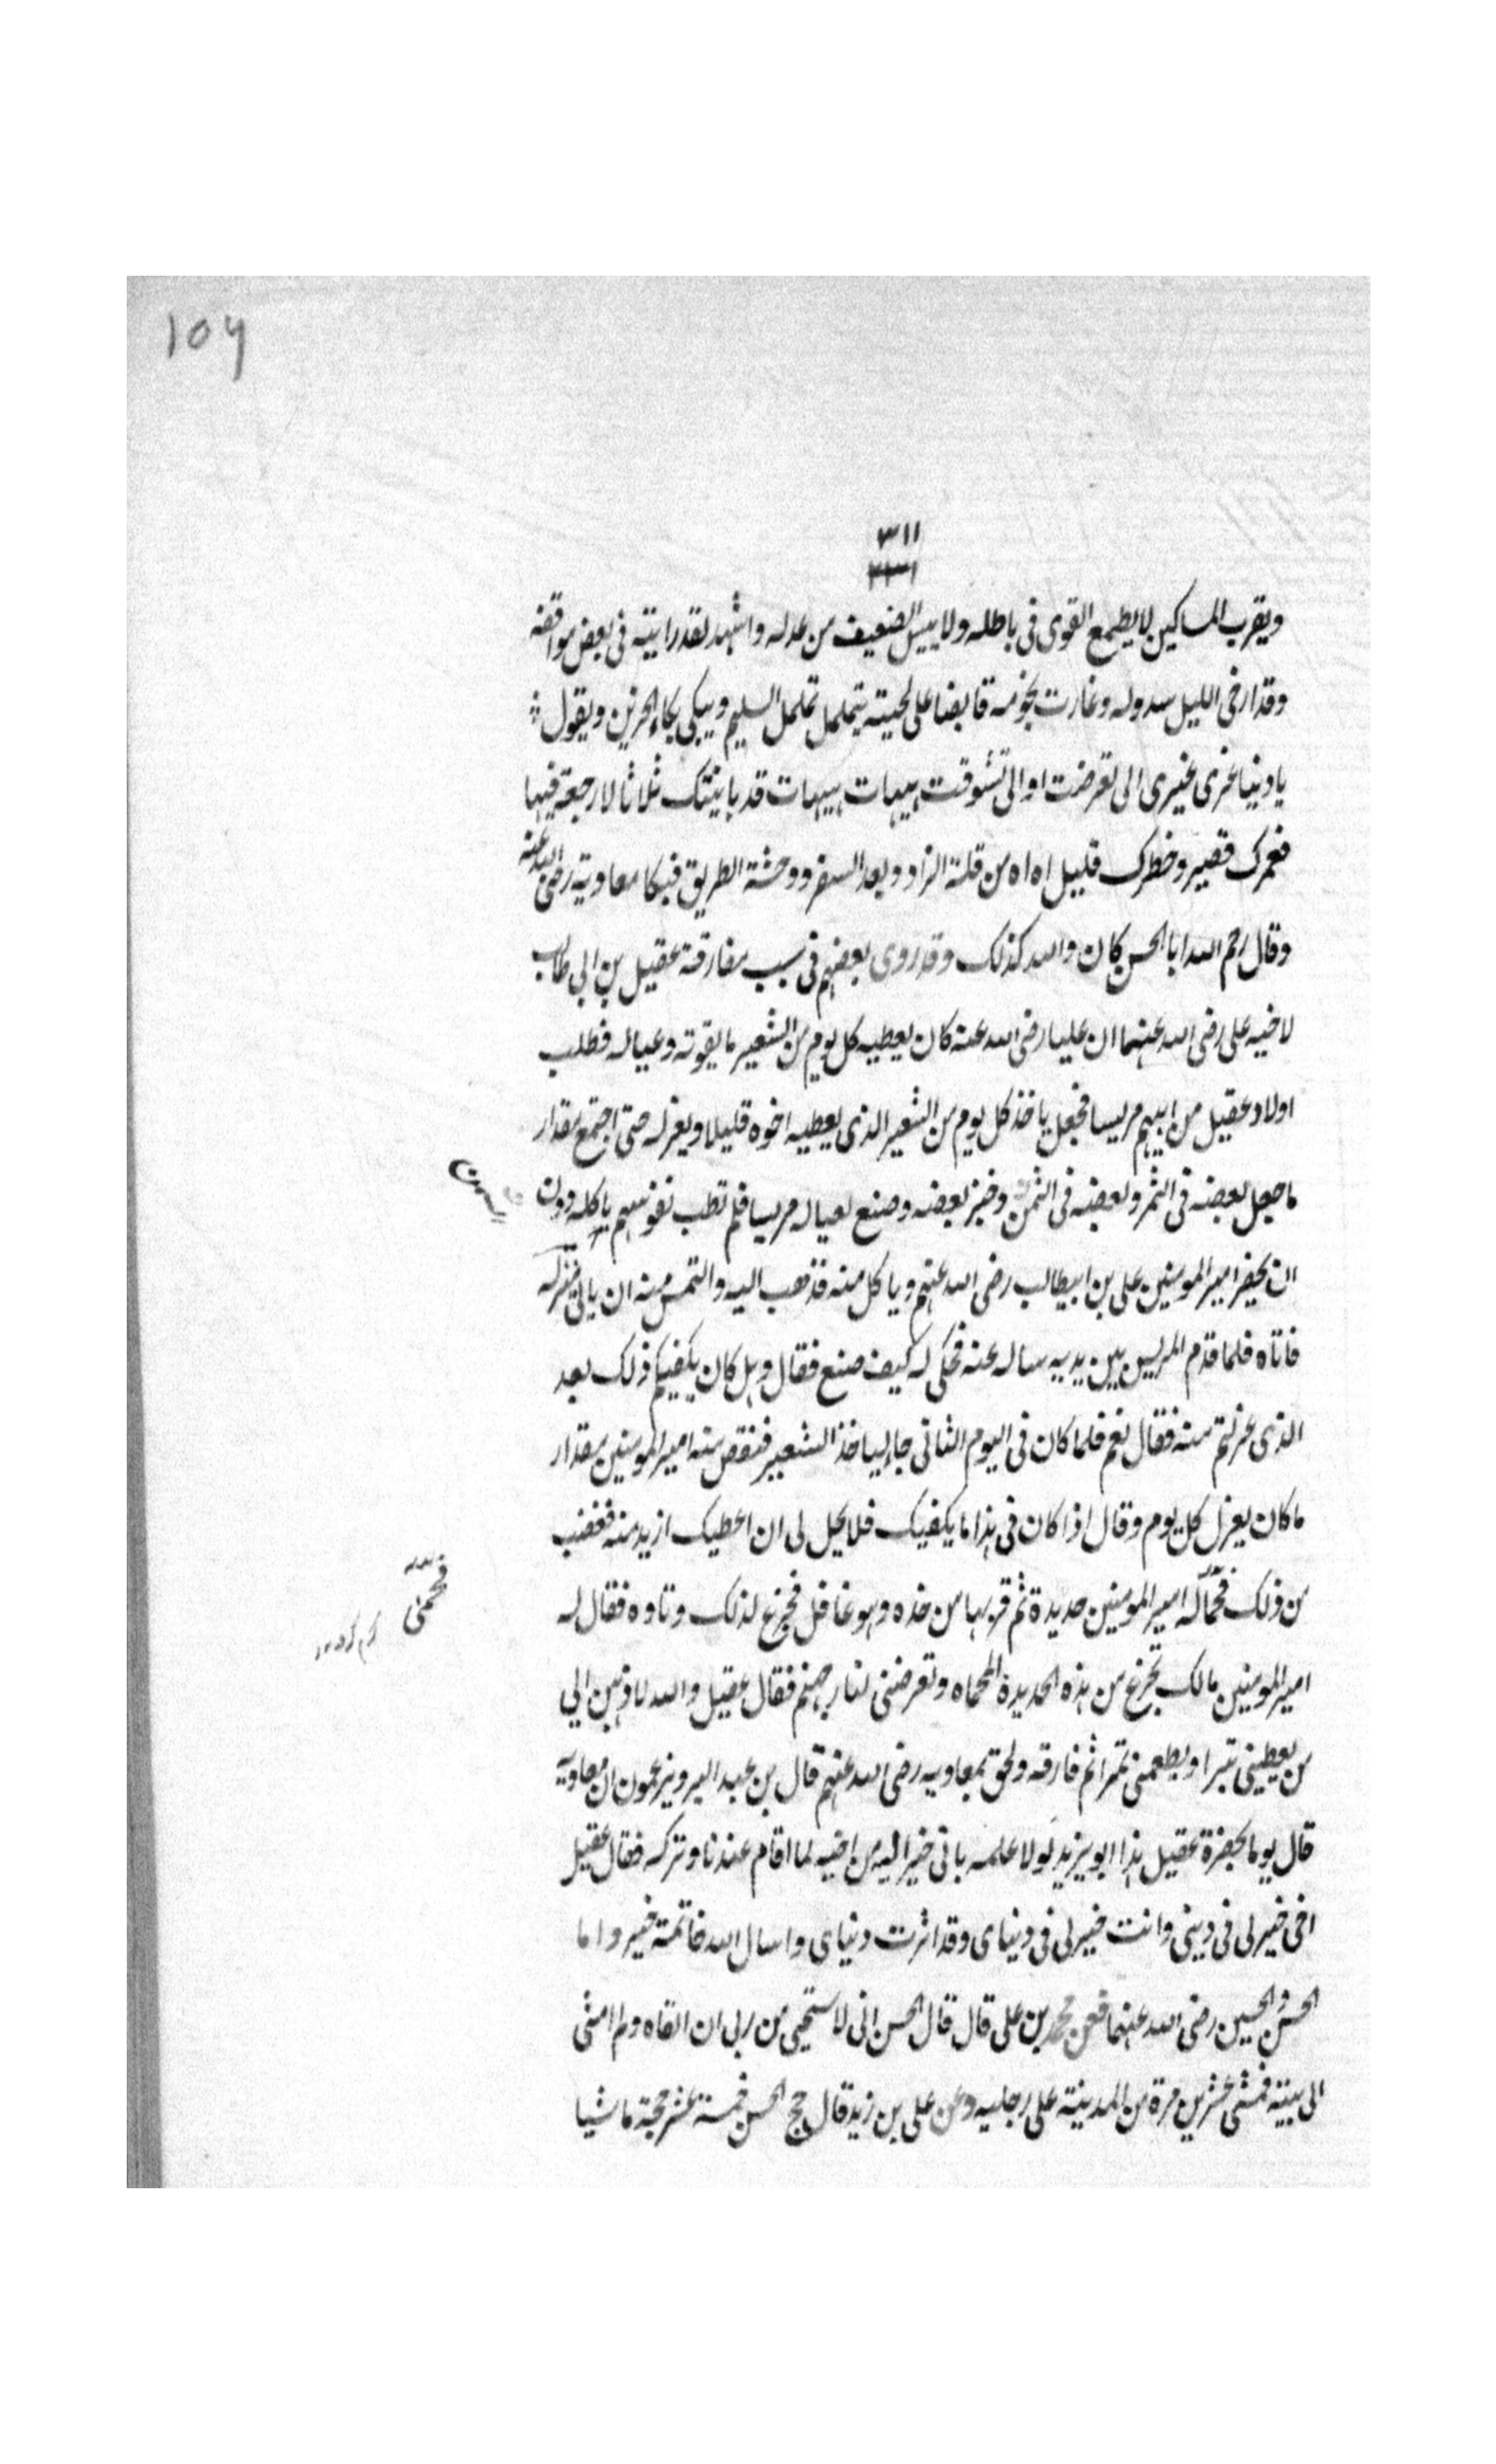 ۱۵۶
۳۱۱
۲۳۱
ويقرب المساكين لا يطمع القوى فى باطله ولا ييس الضعيف من عدله واشهد لقد رايته فى بعض مواقفه
وقد ارخى الليل سدوله وغارت نجومه قابضا على لحيته يتململ تململ السليم ويبكى بكاء الحزين ويقول
يا دنيا غرى غيرى الى تعرضت او الى تشوقت هيهات هيهات قد باينتك ثلاثا لا رجعة فيها
فعمرك قصير وخطرك قليل اه اه من قلة الزاد وبعد السفر ووحشة الطريق فبكا معاوية رضى الله عنه
وقال رحم الله ابا الحسن كان والله كذلك وقد روى بعضهم فى سبب مفارقة عقيل بن ابى طالب
لاخيه على رضى الله عنهما ان عليا رضى الله عنه كان يعطيه كل يوم من الشعير ما يقوته وعياله فطلب
اولاد عقيل من ابيهم مريسا فجعل ياخذ كل يوم من الشعير الذى يعطيه اخوه قليلا ويعزله حتى اجتمع مقدار
ما جعل بعضه فى التمر وبعضه فى الثمن وخبز بعضه وصنع لعياله مريسا فلم تطب نفوسهم باكله دون
السمن
ان يحضر امير المومنين على بن ابيطالب رضى الله عنهم وياكل منه فذهب اليه والتمس منه ان ياتى منزله
فاتاه فلما قدم المريس بين يديه ساله عنه فحكى له كيف صنع فقال وهل كان يكفيكم ذلك بعد
الذى عزلتم منه فقال نعم فلما كان فى اليوم الثانى جا لياخذ الشعير فنقص منه امير المومنين مقدار
ما كان يعزل كل يوم وقال اذا كان فى هذا ما يكفيك فلا يحل لى ان اعطيك ازيد منه فغضب
من ذلك فحمّا له امير المومنين حديدة ثم قربها من خده وهو غافل فجزع لذلك وتاوه فقال له
فحمّى
امير المومنين مالك تجزع من هذه الحديدة المحماه وتعرضنى لنار جهنم فقال عقيل والله لاذهبن الى
من يعطينى تبرا ويطعمنى تمرا ثم فارقه ولحق بمعاويه رضى الله عنهم قال بن عبد البر ويزعمون ان معاوية
قال يوما بحضرة عقيل هذا ابو يزيد لولا علمه بانى خير اليه من اخيه لما اقام عندنا وتركه فقال عقيل
اخى خير لى فى دينى وانت خير لى فى دنياى وقد اثرت دنياى واسال الله خاتمة خير واما
الحسن والحسين رضى الله عنهما فعن محمد بن على قال قال الحسن انى لاستحيى من ربى ان القاه ولم امشى
الى بيته فمشى عشرين مرة من المدينة على رجليه وعن على بن زيد قال حج الحسن خمسة عشر حجة ماشيا